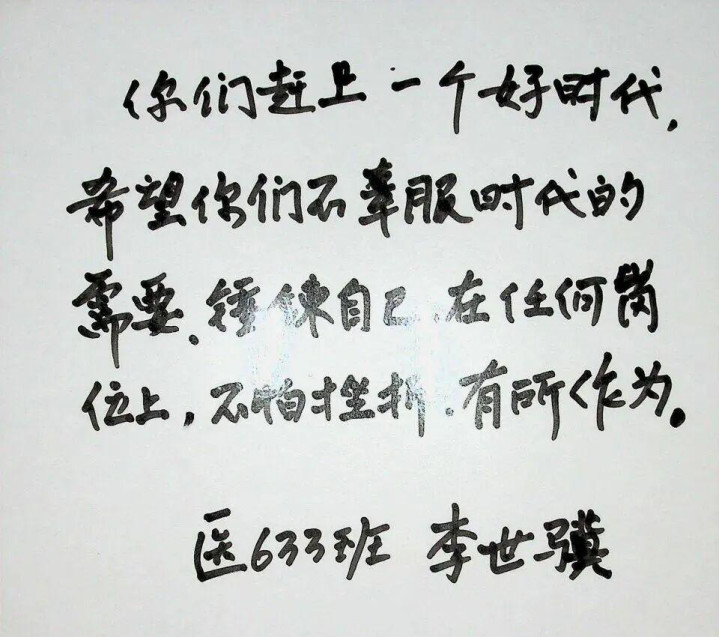 你们赶上一个好时代,
希望你们不辜服时代的
需要、锤鍊自己、在任何岗
位上,不怕挫折、有所作为。
医633班 李世骥